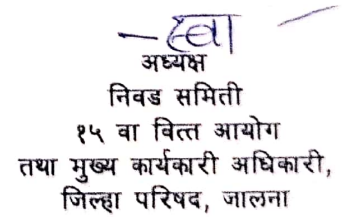 –स्वा–
अध्यक्ष
निवड समिती
१५ वा वित्त आयोग
तथा मुख्य कार्यकारी अधिकारी,
जिल्हा परिषद, जालना